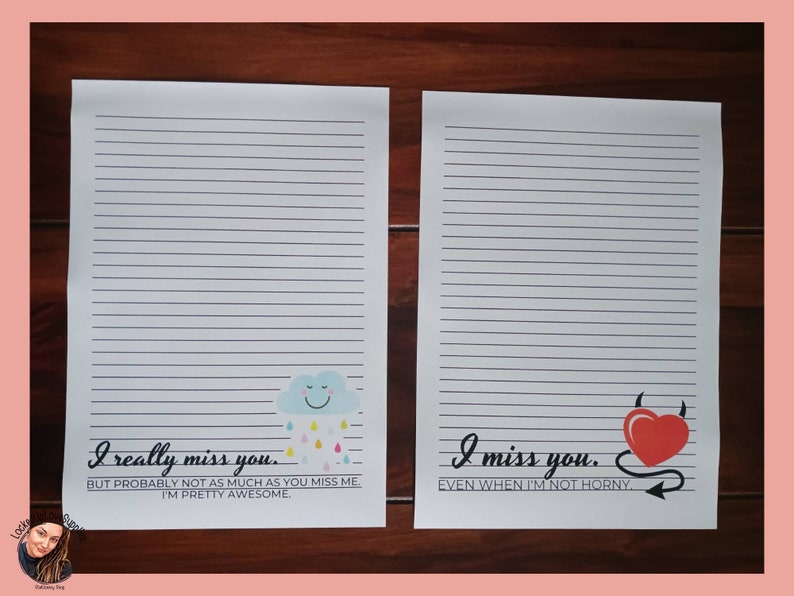 I really miss you.
BUT PROBABLY NOT AS MUCH AS YOU MISS ME.
I'M PRETTY AWESOME.
I miss you.
EVEN WHEN I'M NOT HORNY.
LockedUpLoveSupplies
Stationery Shop